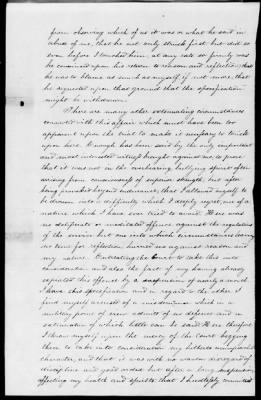 from observing which of us it was or what he said in
abuse of me, that he not only struck first but did so
even before I touched him, at any rate so firmly was
he convinced upon his return to reason and reflection that
he was to blame as much as myself if not more, that
he requested upon that ground that the specification
might be withdrawn.
There are many other extenuating circumstances
connected with this affair which must have been too
apparent upon the trial to make it necessary to touch
upon here. Enough has been said by the only important
and most interested witness brought against me, to prove
that it was not in the overbearing, bullying spirit often
arising from consciousness of superior strength, but after
being provoked beyond endurance, that I allowed myself to
be drawn into a difficulty which I deeply regret, one of a
nature which I have ever tried to avoid. Here was
no deliberate or meditated offence against the regulations
of the service but one into which circumstances leaving
no time for reflection, hurried me against reason and
my nature. Entreating the Court to take this into
consideration and also the fact of my having already
expiated this offence by a suspension of nearly a month
I leave this specification and in regard to the other I
find myself accused of a misdemeanor which in a
military point of view admits of no defence and in
extenuation of which little can be said. Here therefore
I throw myself upon the mercy of the Court begging
them to take into consideration my hitherto unimpeached
character, and that it was with no wanton disregard of
discipline and good order but after a long suspension
affecting my health and spirits that I heedlessly committed